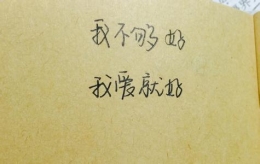 我不够好
我爱就好